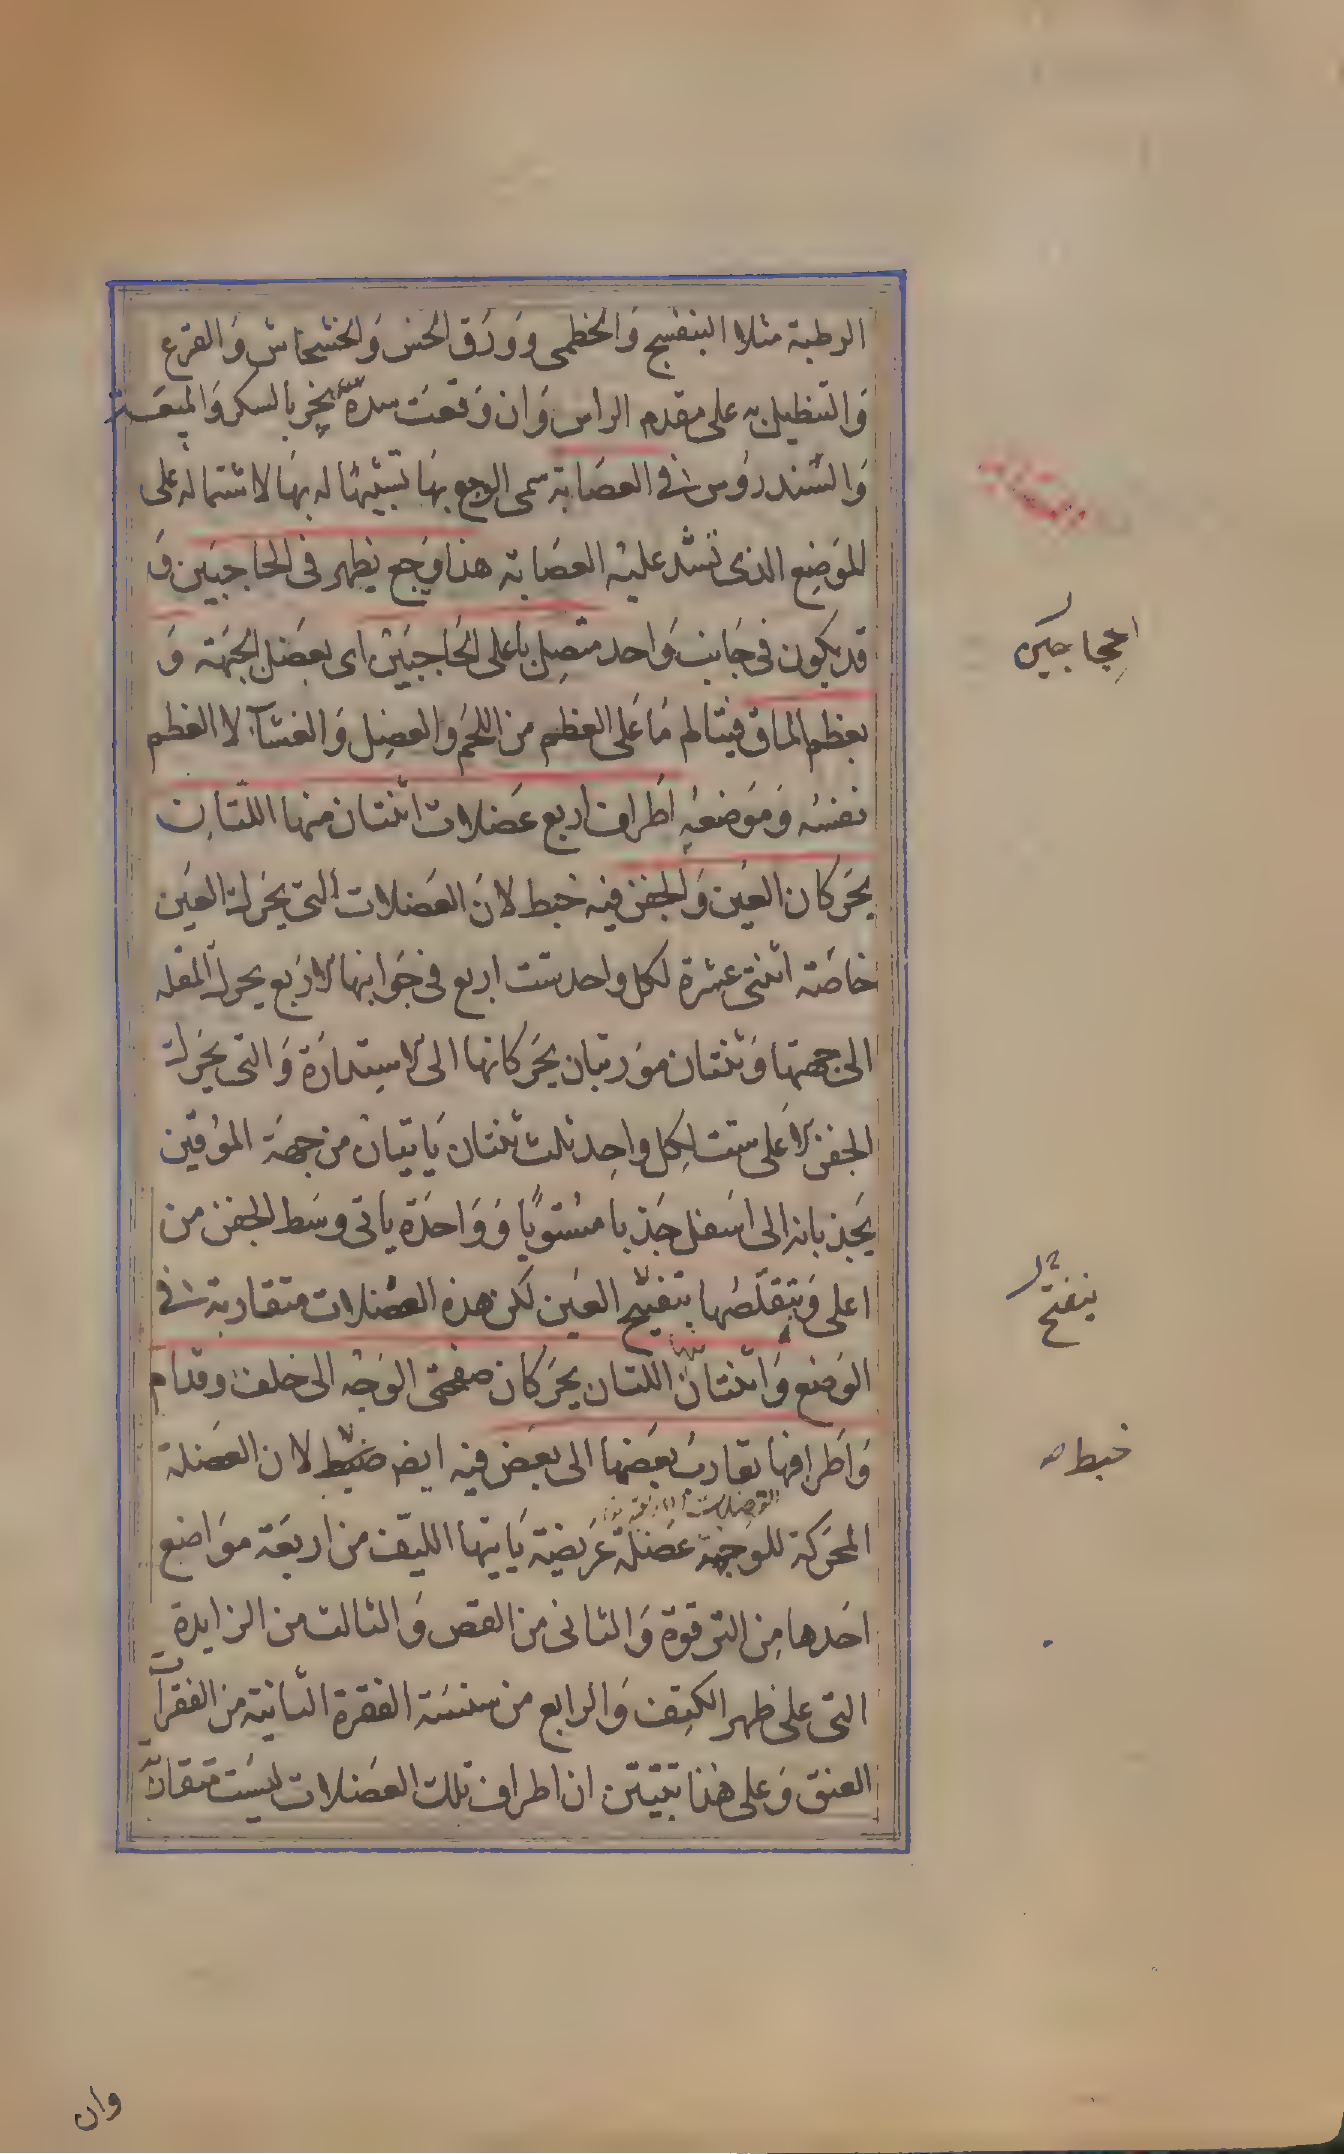 الرطبة مثلا البنفسج وَالخطمى وورَق الخس وَالخشخاش وَالقرع
وَالتنطيل به على مقدم الراس وَان وَقعَت سدة يبخر بالسكر وَالميعَة
وَالسندروس فى العصَابة سمى الوجع بهَا تشبيهًا له بهَا لاشتماله على
الموَضِع الذى تشد عليه العصَابة هذا وَجع يظهر فى الحاجبَين وَ
قد يكون فى جَانب وَاحد متصِل باعلى الحَاجبَين اى بعضل الجَبهَة وَ
بعظم الماق فيتالم مَا عَلى العظم من اللحَم وَالعضِل وَالغشآء لا العظم
نفسُه وَموَضعهِ اَطراف اربع عَضلات اثنتان منها اللتَان
يحَركان العيَن وَالجفن فيه خبط لانَ العَضلات التى يحَرك العيَن
خاصَة اثنتى عشرة لكل واحد ست اربع فى جَوانبها الاربع يحرك المقله
الى جهتها وَثنتان موَربتان يحَركانها الى الاستدارَة وَالتى يحَرك
الجفن الاعَلى ست لكل واحِد ثلث ثنتان يَاتيان من جهَة الموُقين
يَجذبانه الى اسَفل جَذبا مسُتويًا وَوَاحدَة ياتى وسَط الجفن من
اعلى وَبتقلصُها يتفتح العيَن لكن هذه العضلات متقاربة فى
الوَضع وَاثنتان منها اللتان يحَركان صفحتى الوَجه الى خلف وقدام
وَاَطرافها يقاربُ بعَضها الى بعَض فيه ايض خبط لان العَضلة
المحَركة للوَجه عَضلة عَريضة يَاتيها الليَف من اربعَة موَاضع
احَدها مِن الترقوَة وَالثانى من القص وَالثالث من الزايدة
التى على ظهر الكتِف وَالرابع من سنسَة الفقرة الثانية من الفقرات
العنق وَعلى هذا تبيَن ان اطراف تلك العَضلات ليسَت متقاربة
الحاجبين
ينفتح
خبط
وان